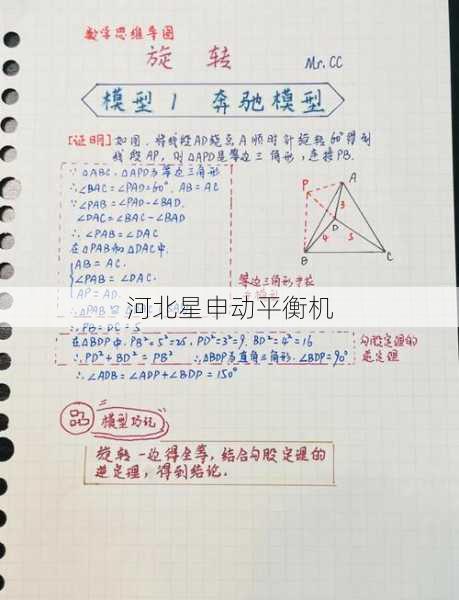 数学思维导图
旋 转 Mr.CC
模型1 奔驰模型
[证明] 如图,将线段AD绕点A顺时针旋转60°得到
线段AP,则△APD是等边三角形,连接PB.
∵△ABC.△APD为等边三角形
∴∠BAC=∠PAD=60°. AB=AC
∵∠PAB=∠PAD-∠BAD.
∠DAC=∠BAC-∠BAD
∴∠PAB=∠DAC
在△PAB和△DAC中.
AB=AC.
∠PAB=∠DAC.
AP=AD.
∴△PAB
等边三角形
河北星申动平衡机
∴PB=DC=5
在△BDP中. PB²=5²=25. PD²=3²=9. BD²=4²=16
∴PD²+BD²=PB² ∴△BDP为直角三角形. ∠BDP=90°
勾股定理的
逆定理
∴∠ADB=∠ADP+∠BDP=150°
P
A
3
D
4
5
B
C
模型巧记
旋转一边得全等,结合勾股定理的
逆定理,得到结论.